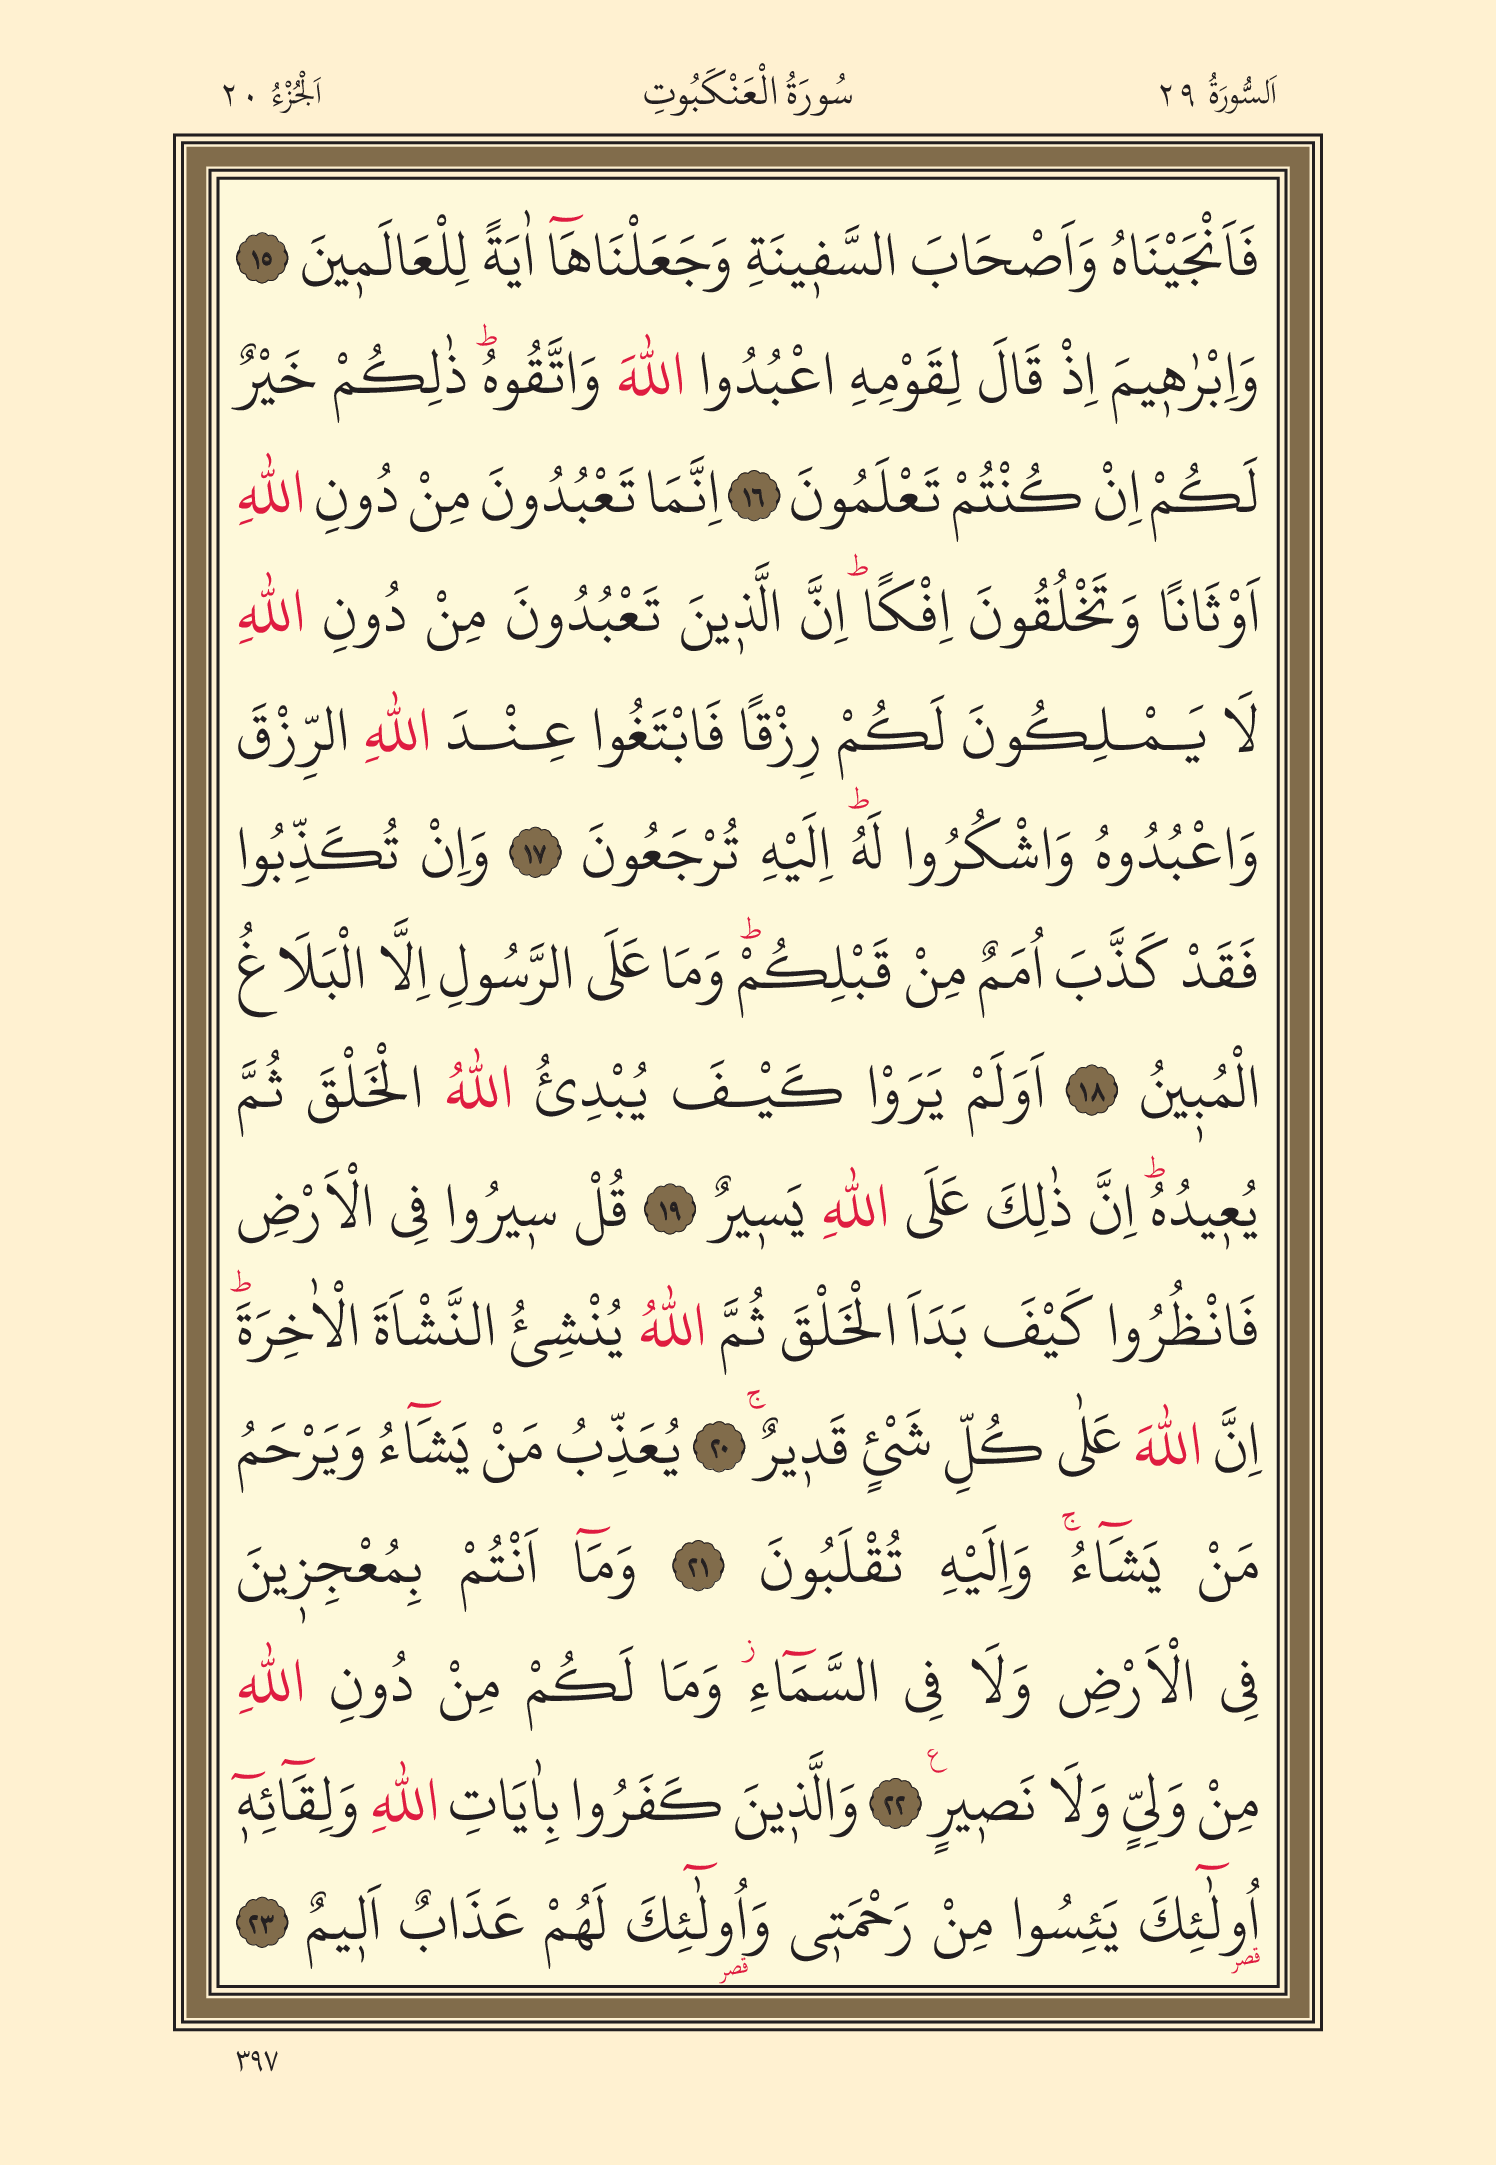 اَلسُّورَةُ ٢٩ سُورَةُ الْعَنْكَبُوتِ اَلْجُزْءُ ٢٠
فَاَنْجَيْنَاهُ وَاَصْحَابَ السَّفٖينَةِ وَجَعَلْنَاهَآ اٰيَةً لِلْعَالَمٖينَ ١٥
وَاِبْرٰهٖيمَ اِذْ قَالَ لِقَوْمِهِ اعْبُدُوا اللّٰهَ وَاتَّقُوهُ ؕ ذٰلِكُمْ خَيْرٌ
لَكُمْ اِنْ كُنْتُمْ تَعْلَمُونَ ١٦ اِنَّمَا تَعْبُدُونَ مِنْ دُونِ اللّٰهِ
اَوْثَانًا وَتَخْلُقُونَ اِفْكًا ؕ اِنَّ الَّذٖينَ تَعْبُدُونَ مِنْ دُونِ اللّٰهِ
لَا يَمْلِكُونَ لَكُمْ رِزْقًا فَابْتَغُوا عِنْدَ اللّٰهِ الرِّزْقَ
وَاعْبُدُوهُ وَاشْكُرُوا لَهُ ؕ اِلَيْهِ تُرْجَعُونَ ١٧ وَاِنْ تُكَذِّبُوا
فَقَدْ كَذَّبَ اُمَمٌ مِنْ قَبْلِكُمْ ؕ وَمَا عَلَى الرَّسُولِ اِلَّا الْبَلَاغُ
الْمُبٖينُ ١٨ اَوَلَمْ يَرَوْا كَيْفَ يُبْدِئُ اللّٰهُ الْخَلْقَ ثُمَّ
يُعٖيدُهُ ؕ اِنَّ ذٰلِكَ عَلَى اللّٰهِ يَسٖيرٌ ١٩ قُلْ سٖيرُوا فِى الْاَرْضِ
فَانْظُرُوا كَيْفَ بَدَاَ الْخَلْقَ ثُمَّ اللّٰهُ يُنْشِئُ النَّشْاَةَ الْاٰخِرَةَ ؕ
اِنَّ اللّٰهَ عَلٰى كُلِّ شَيْئٍ قَدٖيرٌ ۚ ٢٠ يُعَذِّبُ مَنْ يَشَآءُ وَيَرْحَمُ
مَنْ يَشَآءُ ۚ وَاِلَيْهِ تُقْلَبُونَ ٢١ وَمَآ اَنْتُمْ بِمُعْجِزٖينَ
فِى الْاَرْضِ وَلَا فِى السَّمَآءِ ؗ وَمَا لَكُمْ مِنْ دُونِ اللّٰهِ
مِنْ وَلِىٍّ وَلَا نَصٖيرٍ ع ٢٢ وَالَّذٖينَ كَفَرُوا بِاٰيَاتِ اللّٰهِ وَلِقَآئِهٖٓ
اُولٰٓئِكَ يَئِسُوا مِنْ رَحْمَتٖى وَاُولٰٓئِكَ لَهُمْ عَذَابٌ اَلٖيمٌ ٢٣
قصر قصر
٣٩٧